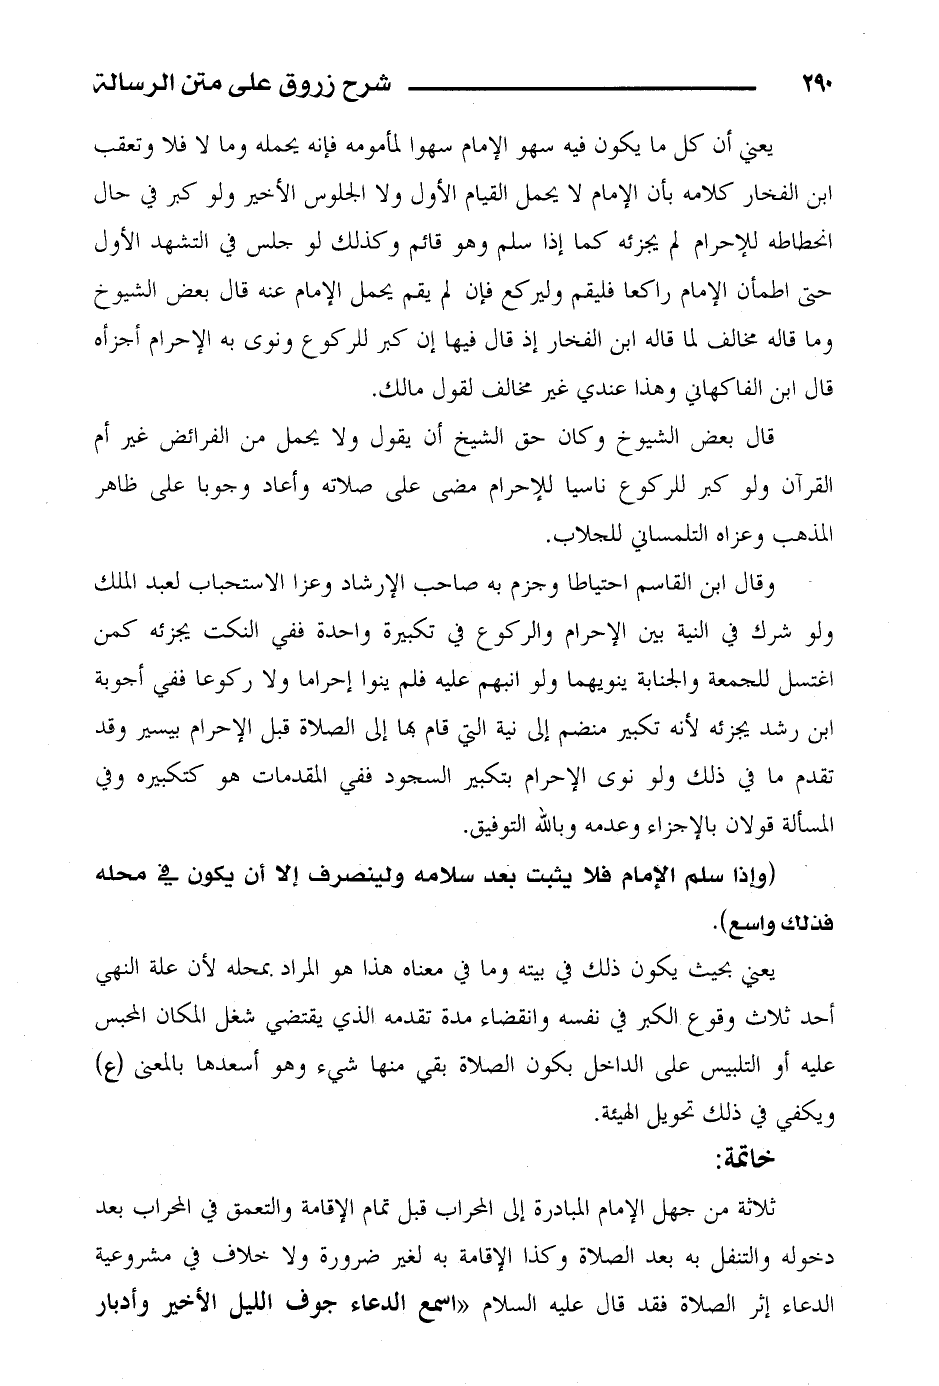 ٢٩٠ شرح زروق على متن الرسالة
يعني أن كل ما يكون فيه سهو الإمام سهوا لمأمومه فإنه يحمله وما لا فلا وتعقب
ابن الفخار كلامه بأن الإمام لا يحمل القيام الأول ولا الجلوس الأخير ولو كبر في حال
انحطاطه للإحرام لم يجزئه كما إذا سلم وهو قائم وكذلك لو جلس في التشهد الأول
حتى اطمأن الإمام راكعا فليقم وليركع فإن لم يقم يحمل الإمام عنه قال بعض الشيوخ
وما قاله مخالف لما قاله ابن الفخار إذ قال فيها إن كبر للركوع ونوى به الإحرام أجزأه
قال ابن الفاكهاني وهذا عندي غير مخالف لقول مالك.
قال بعض الشيوخ وكان حق الشيخ أن يقول ولا يحمل من الفرائض غير أم
القرآن ولو كبر للركوع ناسيا للإحرام مضى على صلاته وأعاد وجوبا على ظاهر
المذهب وعزاه التلمساني للجلاب.
وقال ابن القاسم احتياطا وجزم به صاحب الإرشاد وعزا الاستحباب لعبد الملك
ولو شرك في النية بين الإحرام والركوع في تكبيرة واحدة ففي النكت يجزئه كمن
اغتسل للجمعة والجنابة ينويهما ولو انبهم عليه فلم ينوا إحراما ولا ركوعا ففي أجوبة
ابن رشد يجزئه لأنه تكبير منضم إلى نية التي قام بها إلى الصلاة قبل الإحرام بيسير وقد
تقدم ما في ذلك ولو نوى الإحرام بتكبير السجود ففي المقدمات هو كتكبيره وفي
المسألة قولان بالإجزاء وعدمه وبالله التوفيق.
(وإذا سلم الإمام فلا يثبت بعد سلامه ولينصرف إلا أن يكون في محله
فذلك واسع).
يعني بحيث يكون ذلك في بيته وما في معناه هذا هو المراد بمحله لأن علة النهي
أحد ثلاث وقوع الكبر في نفسه وانقضاء مدة تقدمه الذي يقتضي شغل المكان المحبس
عليه أو التلبيس على الداخل بكون الصلاة بقي منها شيء وهو أسعدها بالمعنى (ع)
ويكفي في ذلك تحويل الهيئة.
خاتمة:
ثلاثة من جهل الإمام المبادرة إلى المحراب قبل تمام الإقامة والتعمق في المحراب بعد
دخوله والتنفل به بعد الصلاة وكذا الإقامة به لغير ضرورة ولا خلاف في مشروعية
الدعاء إثر الصلاة فقد قال عليه السلام «اسمع الدعاء جوف الليل الأخير وأدبار